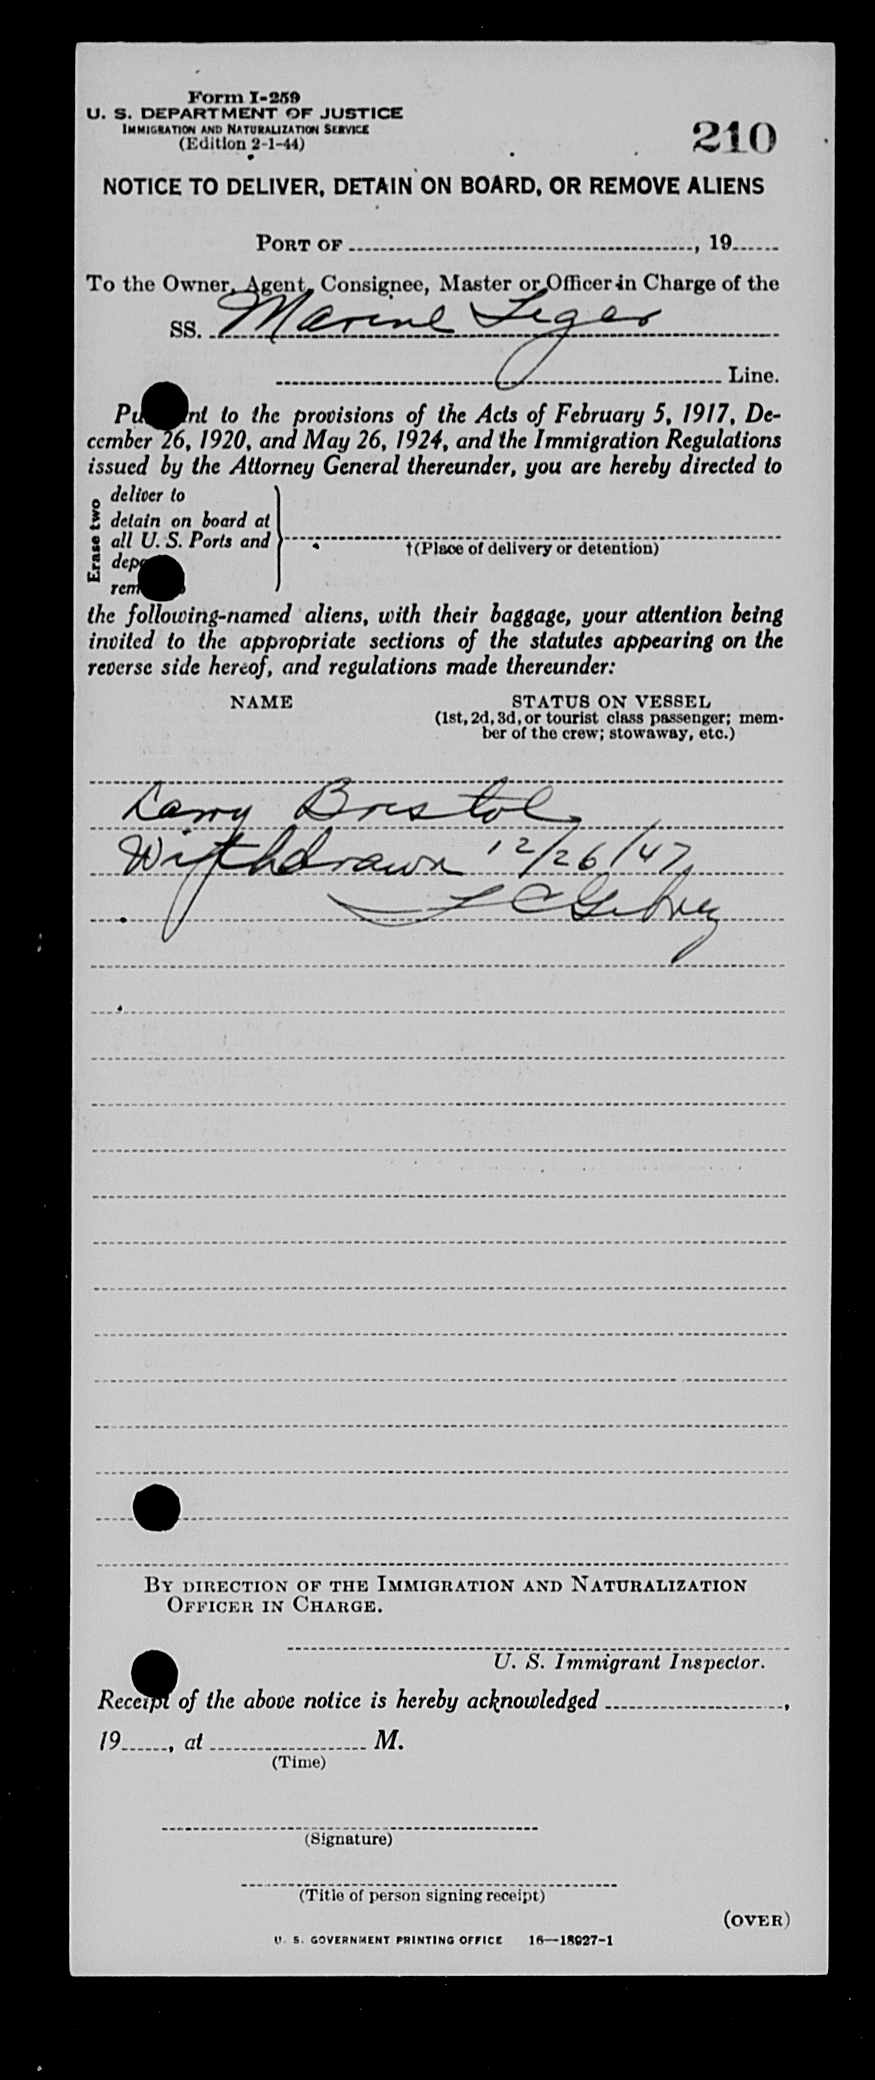 Form I-259
U. S. DEPARTMENT OF JUSTICE
IMMIGRATION AND NATURALIZATION SERVICE
(Edition 2-1-44)
210
NOTICE TO DELIVER, DETAIN ON BOARD, OR REMOVE ALIENS
PORT OF , 19
To the Owner, Agent, Consignee, Master or Officer in Charge of the
SS. Marine Tiger
Line.
Pu nt to the provisions of the Acts of February 5, 1917, De-
cember 26, 1920, and May 26, 1924, and the Immigration Regulations
issued by the Attorney General thereunder, you are hereby directed to
Erase two
deliver to
detain on board at
all U. S. Ports and
dep
rem
†(Place of delivery or detention)
the following-named aliens, with their baggage, your attention being
invited to the appropriate sections of the statutes appearing on the
reverse side hereof, and regulations made thereunder:
NAME STATUS ON VESSEL
(1st, 2d, 3d, or tourist class passenger; mem-
ber of the crew; stowaway, etc.)
Larry Bristol
Withdrawn 12/26/47
BY DIRECTION OF THE IMMIGRATION AND NATURALIZATION
OFFICER IN CHARGE.
U. S. Immigrant Inspector.
Receipt of the above notice is hereby acknowledged ,
19 , at M.
(Time)
(Signature)
(Title of person signing receipt)
(OVER)
U. S. GOVERNMENT PRINTING OFFICE 16—18927-1